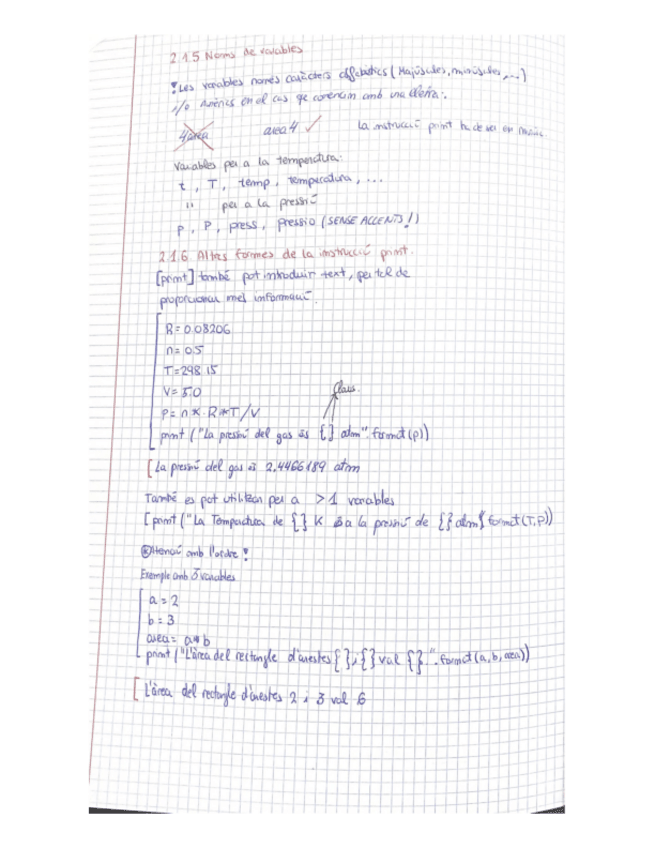 2.1.5 Noms de variables
! Les variables només caràcters alfabètics (Majúscules, minúscules, ...)
i/o números en el cas que comencin amb una lletra.
4area area4 ✓ La instrucció print ha de ser en
Variables per a la temperatura:
t, T, temp, temperatura, ...
" per a la pressió
p, P, press, pressio (SENSE ACCENTS!)
2.1.6. Altres formes de la instrucció print.
[print] també pot introduir text, per tal de
proporcionar més informació.
R = 0.08206
n = 0.5
T = 298.15
V = 5.0
claus
P = n * R * T / V
print ("La pressió del gas és {} atm".format(p))
[ La pressió del gas és 2.4466189 atm
També es pot utilitzar per a >1 variables
[ print ("La Temperatura de {} K és a la pressió de {} atm".format(T,P))
Atenció amb l'ordre!
Exemple amb 3 variables
a = 2
b = 3
area = a*b
print ("L'àrea del rectangle d'arestes {} i {} val {}.".format(a, b, area))
[ L'àrea del rectangle d'arestes 2 i 3 val 6